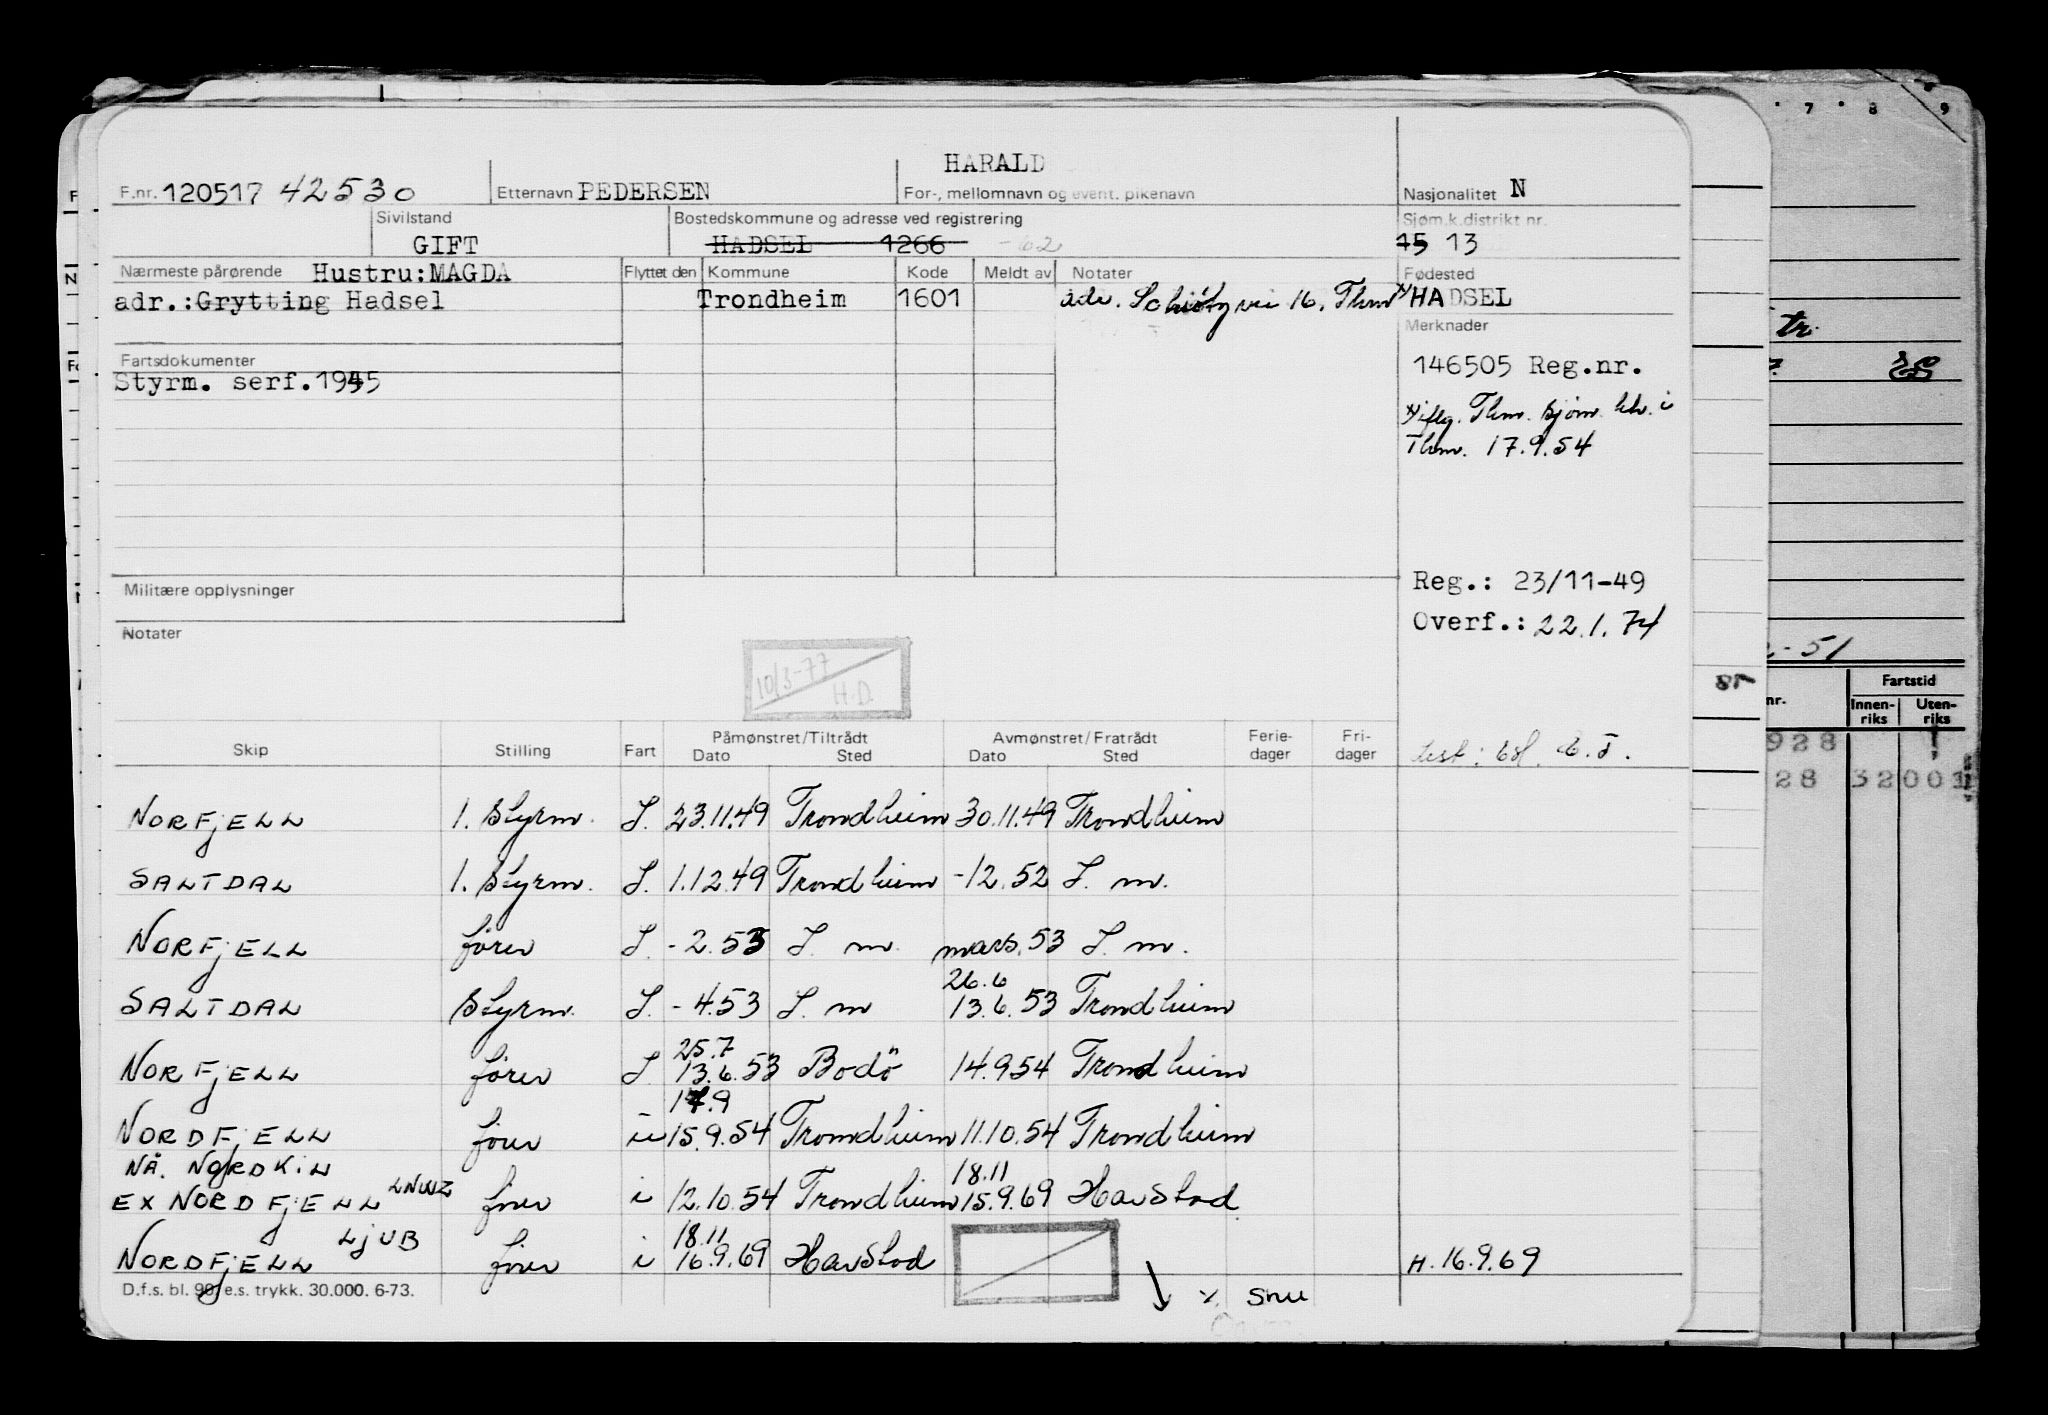 HARALD
F.nr. 120517 42530 Etternavn PEDERSEN For-, mellomnavn og event. pikenavn Nasjonalitet N
Sivilstand Bostedskommune og adresse ved registrering Sjøm.k.distrikt nr.
GIFT HADSEL 1266 -62 15 13
Nærmeste pårørende Hustru:MAGDA Flyttet den Kommune Kode Meldt av Notater Fødested
adr.:Grytting Hadsel Trondheim 1601 adr. 16, Thm x) HADSEL
Merknader
Fartsdokumenter 146505 Reg.nr.
Styrm. serf.1945
x) iflg. Thm. sjøm. i
Thm. 17.9.54
Militære opplysninger Reg.: 23/11-49
Overf.: 22.1.74
Notater
10/3-77
H.D.
Påmønstret/Tiltrådt Avmønstret/Fratrådt Ferie- Fri-
Skip Stilling Fart Dato Sted Dato Sted dager dager
NORFJELL 1. Styrm. S. 23.11.49 Trondheim 30.11.49 Trondheim
SALTDAL 1. Styrm. S. 1.12.49 Trondheim -12.52 S. m.
NORFJELL fører S. -2.53 S. m. mars.53 S. m.
26.6
SALTDAL Styrm. S. -4.53 S. m 13.6.53 Trondheim
25.7
NORFJELL fører S 13.6.53 Bodö 14.9.54 Trondheim
14.9
NORDFJELL fører i 15.9.54 Trondheim 11.10.54 Trondheim
NÅ. NORDKIN 18.11
EX NORDFJELL LNWZ fører i 12.10.54 Trondheim 15.9.69 Havstad
LJUB 18.11
NORDFJELL fører i 16.9.69 Havstad H. 16.9.69
D.f.s. bl. 90. e.s. trykk. 30.000. 6-73. ↓ x. snu
7 8 9
tr.
-51
Fartstid
nr. Innen- Uten-
riks riks
928
28 32001